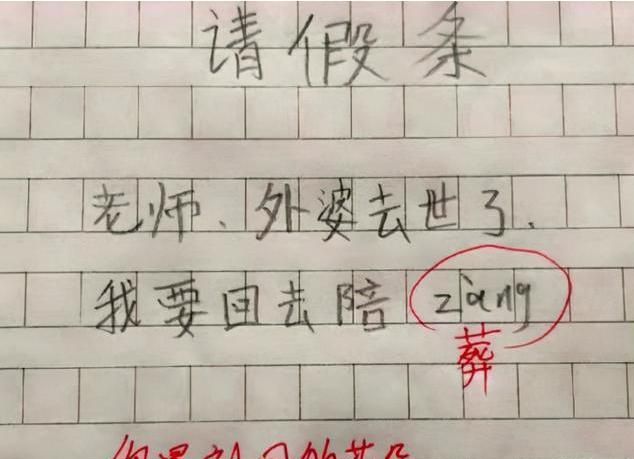 请假条
老师、外婆去世了.
我要回去陪 zàng
葬